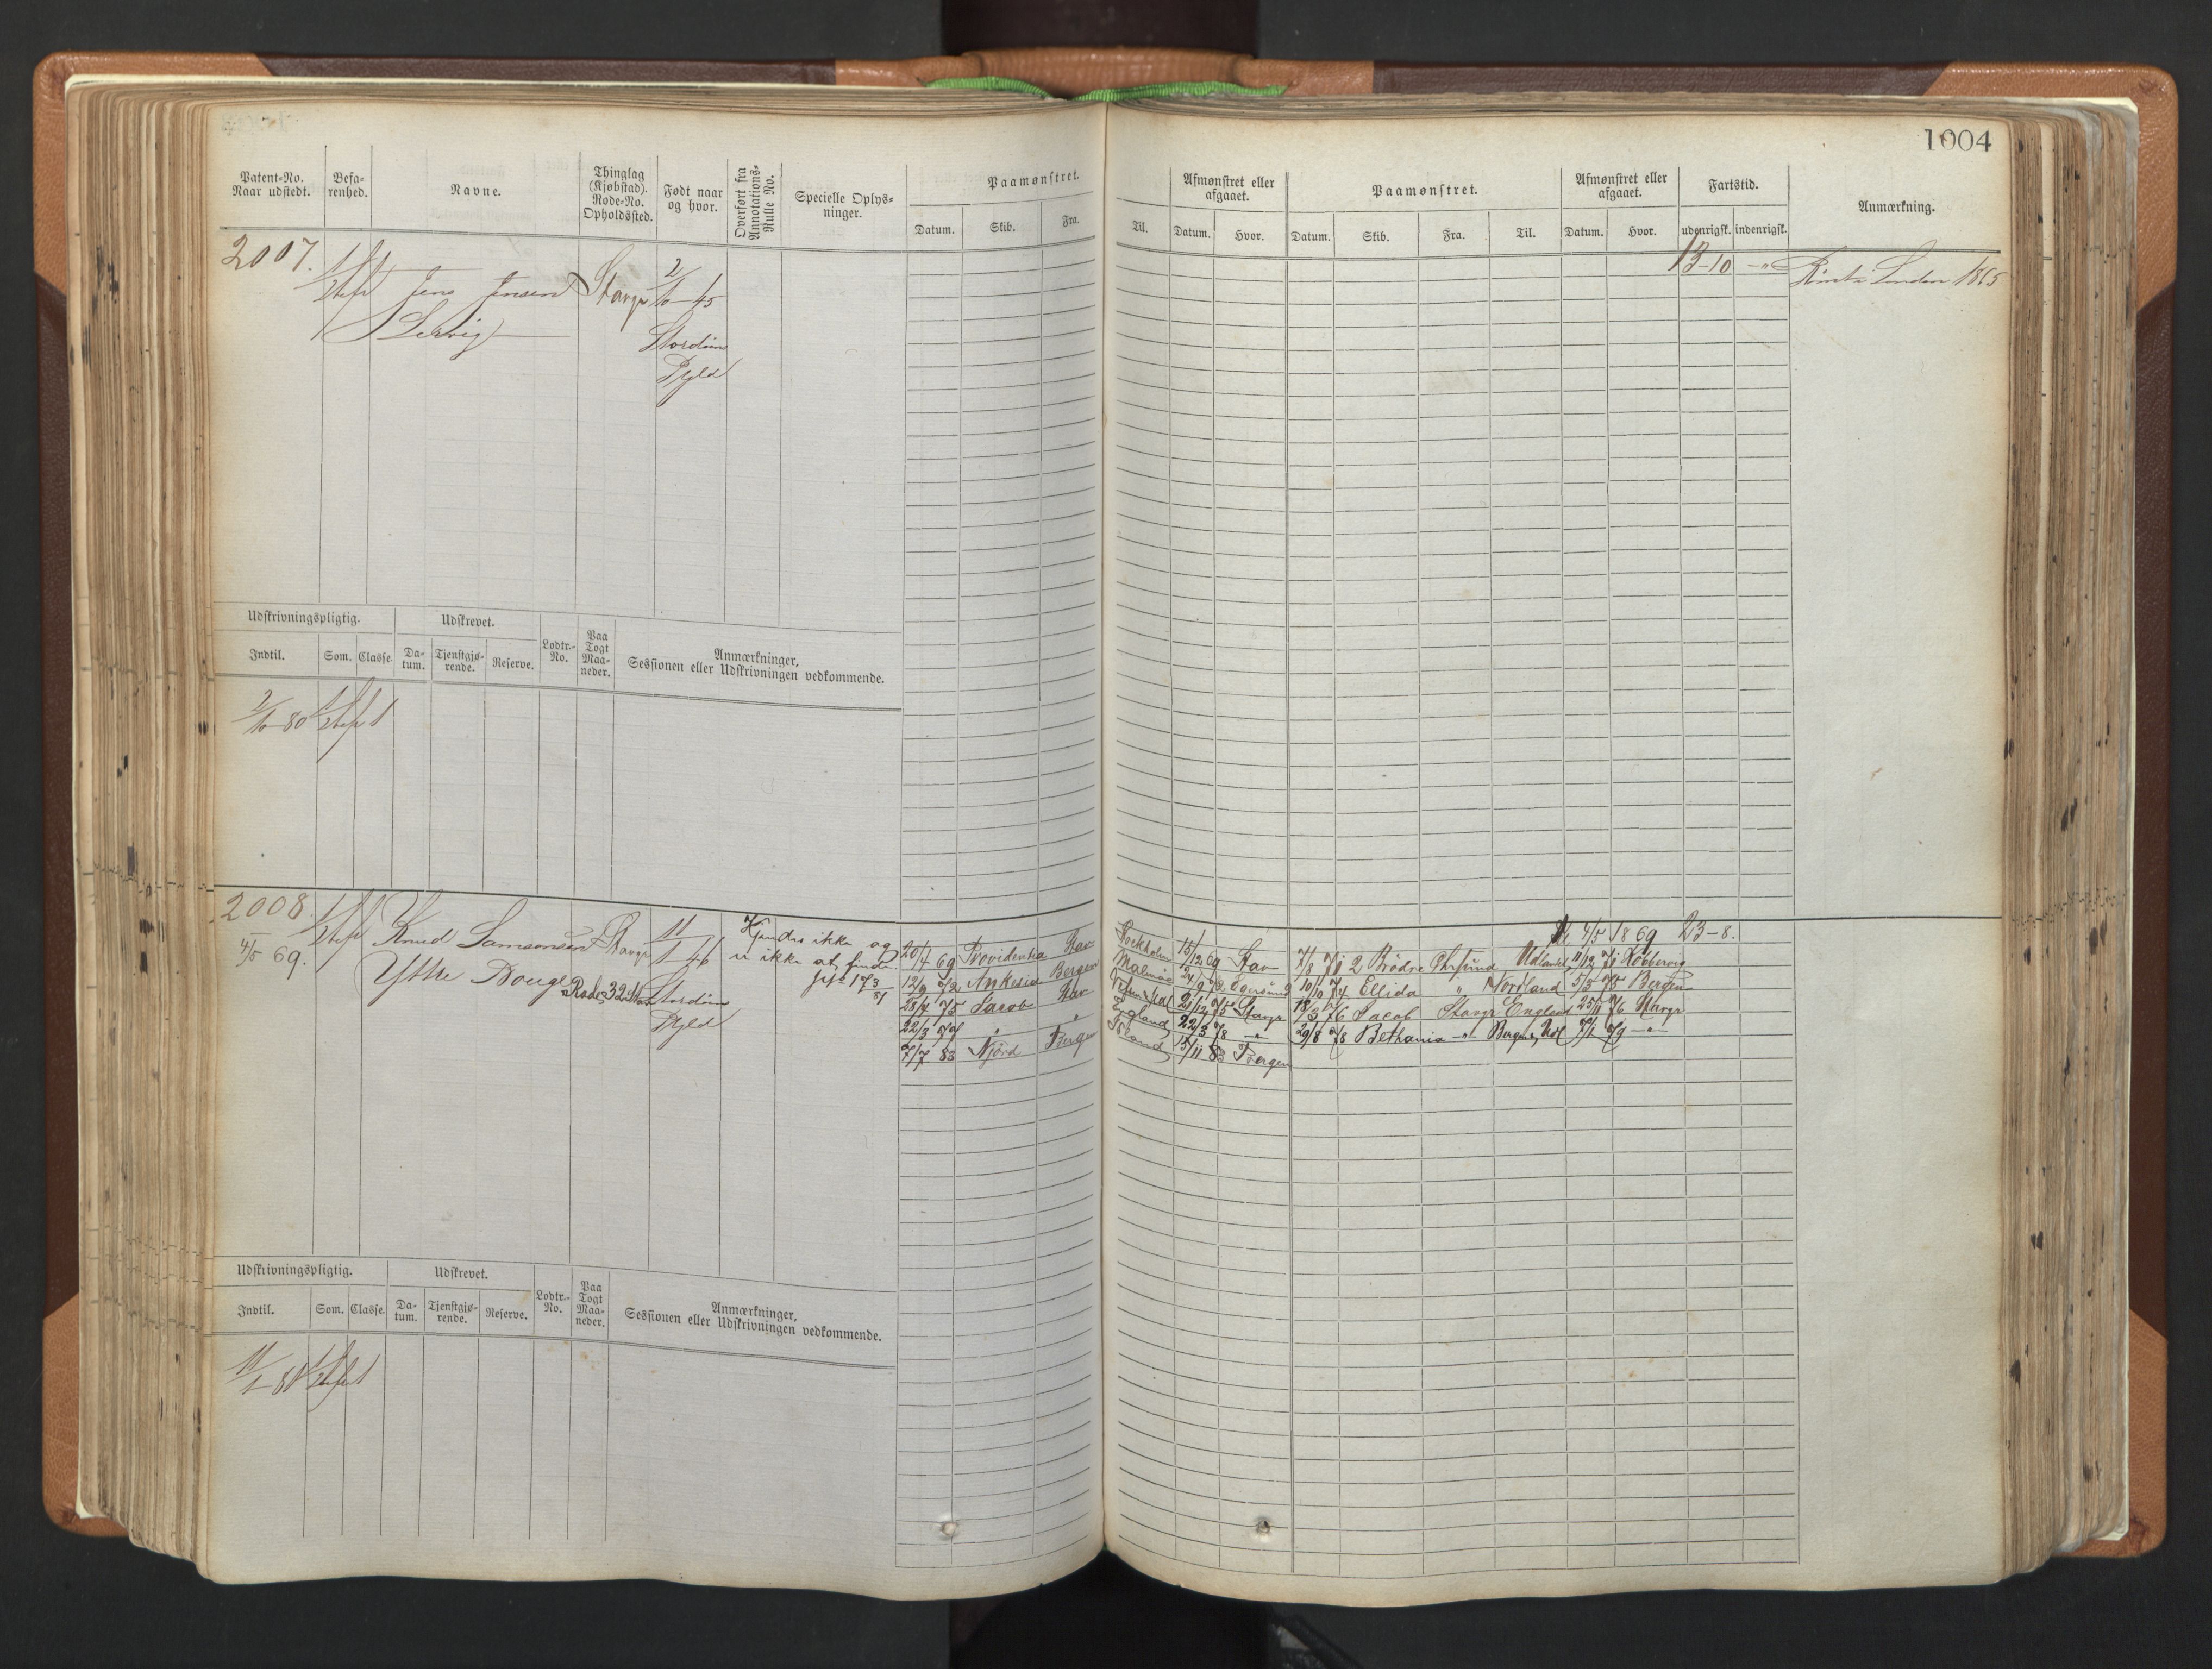 1004
Patent-No. Naar udstedt. Befa-renhed. Navne. Thinglag (Kjøbstad). Rode-No. Opholdssted. Født naar og hvor. Overført fra Annotations-Rulle No. Specielle Oplys-ninger. Paamønstret. Datum. Skib. Fra.
Til. Afmønstret eller afgaaet. Datum. Hvor. Paamønstret. Datum. Skib. Fra. Til. Afmønstret eller afgaaet. Datum. Hvor. Fartstid. udenrigsk. indenrigsk. Anmærkning.
2007. Jens Jensen Stavgr 2/10 45 13-10 -"- London 1865
Lervig Stordøen
Udskrivningspligtig. Udskrevet. Lodtr.-No. Paa Togt Maa-neder. Anmærkninger, Sessionen eller Udskrivningen vedkommende.
Indtil. Som. Classe. Da-tum. Tjenstgjø-rende. Reserve.
2/10 80 1
2008. Knud Samsonsen Stavgr 11/1 46 Kjendes ikke og
4/5 69. Ytke Rode 32 Stordøen er ikke at finde
4/5 1869 23-8.
20/4 69 Providentia Stav Stockholm 15/12 69 Stav 7/8 71 2 Brødre Chrsund Udlandet 11/12 71 Kobbervig
12/9 72 Ankesia Bergen Malmø 24/9 72 Egersund 10/10 74 Ellida " Nordland 5/3 75 Bergen
25/4 75 Jacob Stav 21/12 75 Stavgr 18/3 76 Jacob Stavgr England 25/11 76 Stavgr
22/3 " " England 22/5 78 " 29/8 78 Bethania -"- 7/1 79 -"-
7/7 83 Njörd Bergen Island 15/11 83 Bergen
Udskrivningspligtig. Udskrevet. Lodtr.-No. Paa Togt Maa-neder. Anmærkninger, Sessionen eller Udskrivningen vedkommende.
Indtil. Som. Classe. Da-tum. Tjenstgjø-rende. Reserve.
11/1 81 1